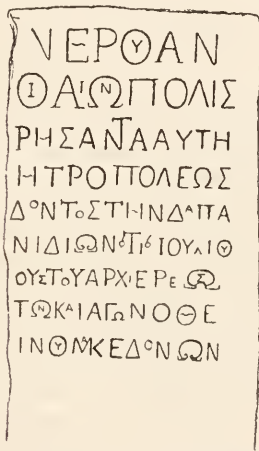 ΝΕΡΟΥΑΝ
ΟΙΑΙΩΝΠΟΛΙΣ
ΡΗΣΑΝΤΑΑΥΤΗ
ΗΤΡΟΠΟΛΕΩΣ
ΔΟΝΤΟΣΤΗΝΔΑΠΑ
ΝΙΔΙΩΝΟΥΤΙΟΥΙΟΥΛΙΟΥ
ΟΥΣΤΟΥΑΡΧΙΕΡΕΩΣ
ΤΩΝΚΑΙΑΓΩΝΟΘΕ
ΙΝΟΥΜΑΚΕΔΟΝΩΝ